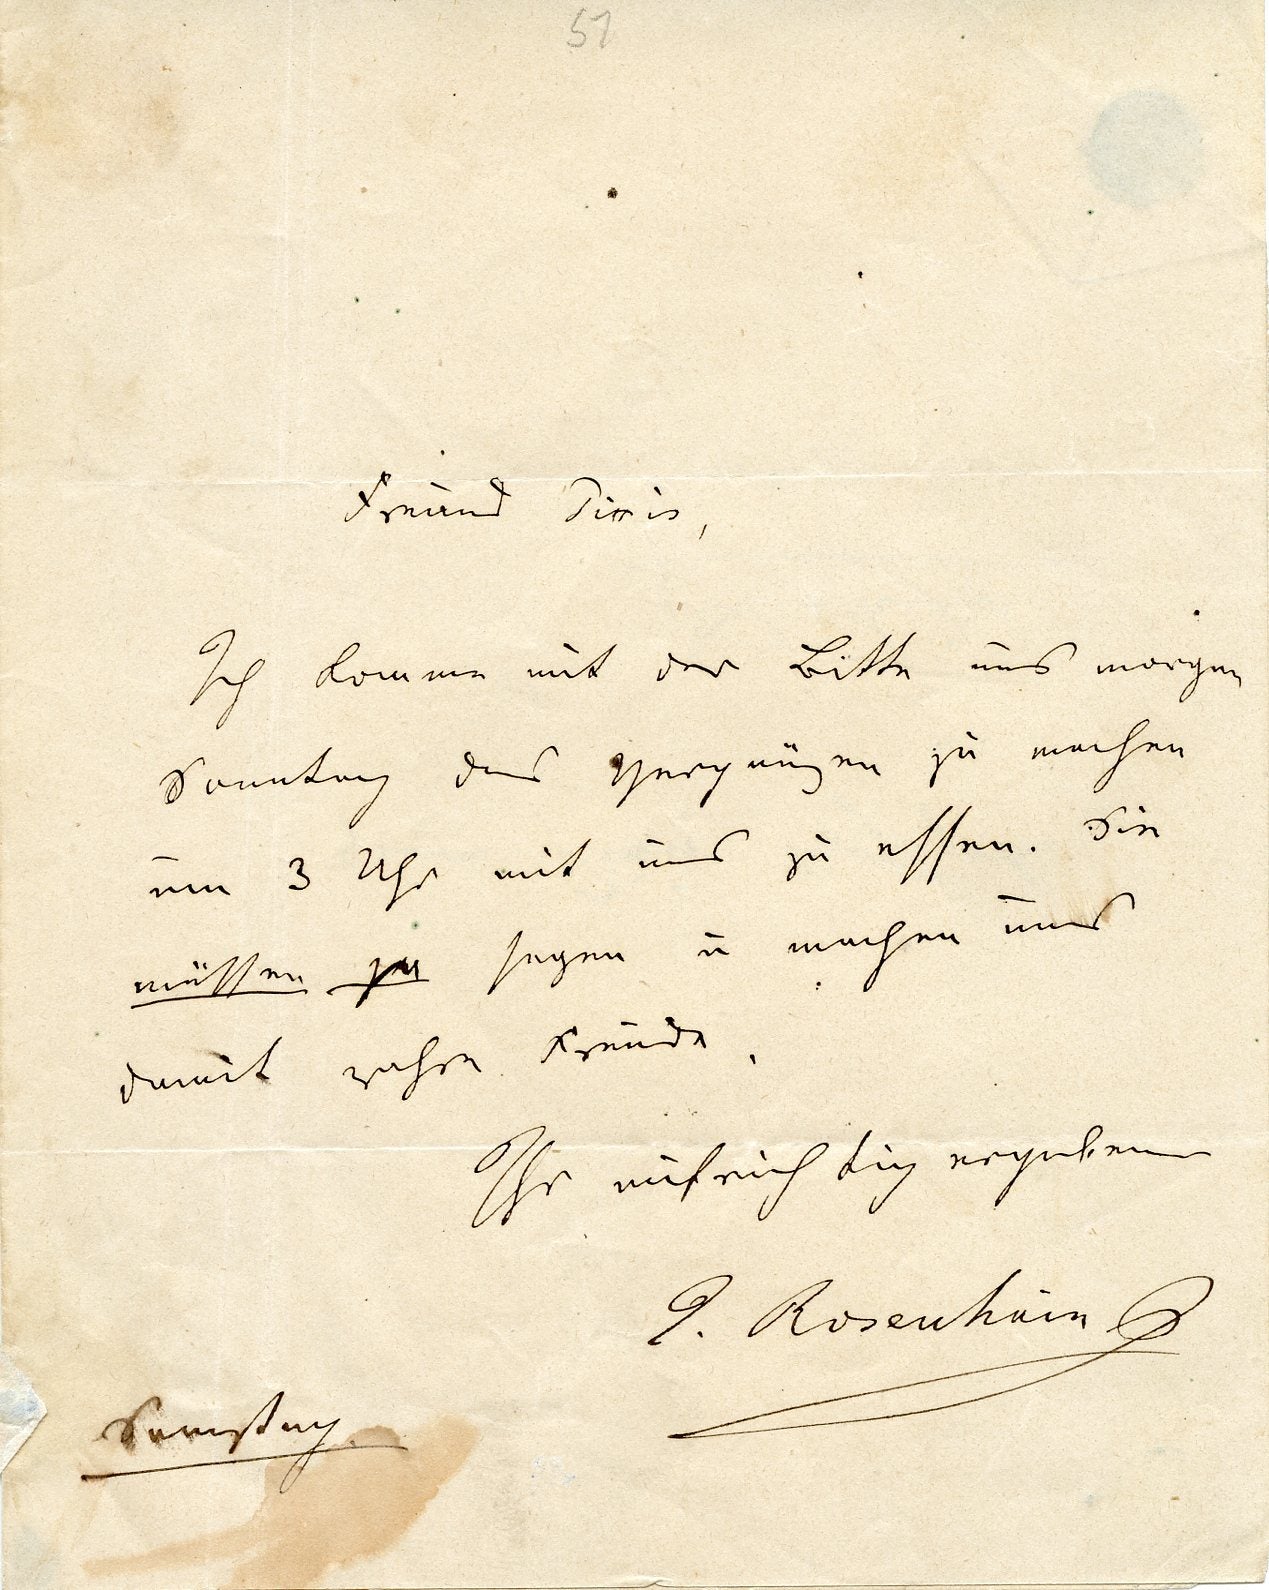 51
Freund Pixis,
Ich komme mit der Bitte uns morgen
Sonntag das Vergnügen zu machen
um 3 Uhr mit uns zu essen. Sie
müssen ja sagen u machen uns
damit wahre Freude.
Ihr aufrichtig ergebener
J. Rosenhain
Samstag.